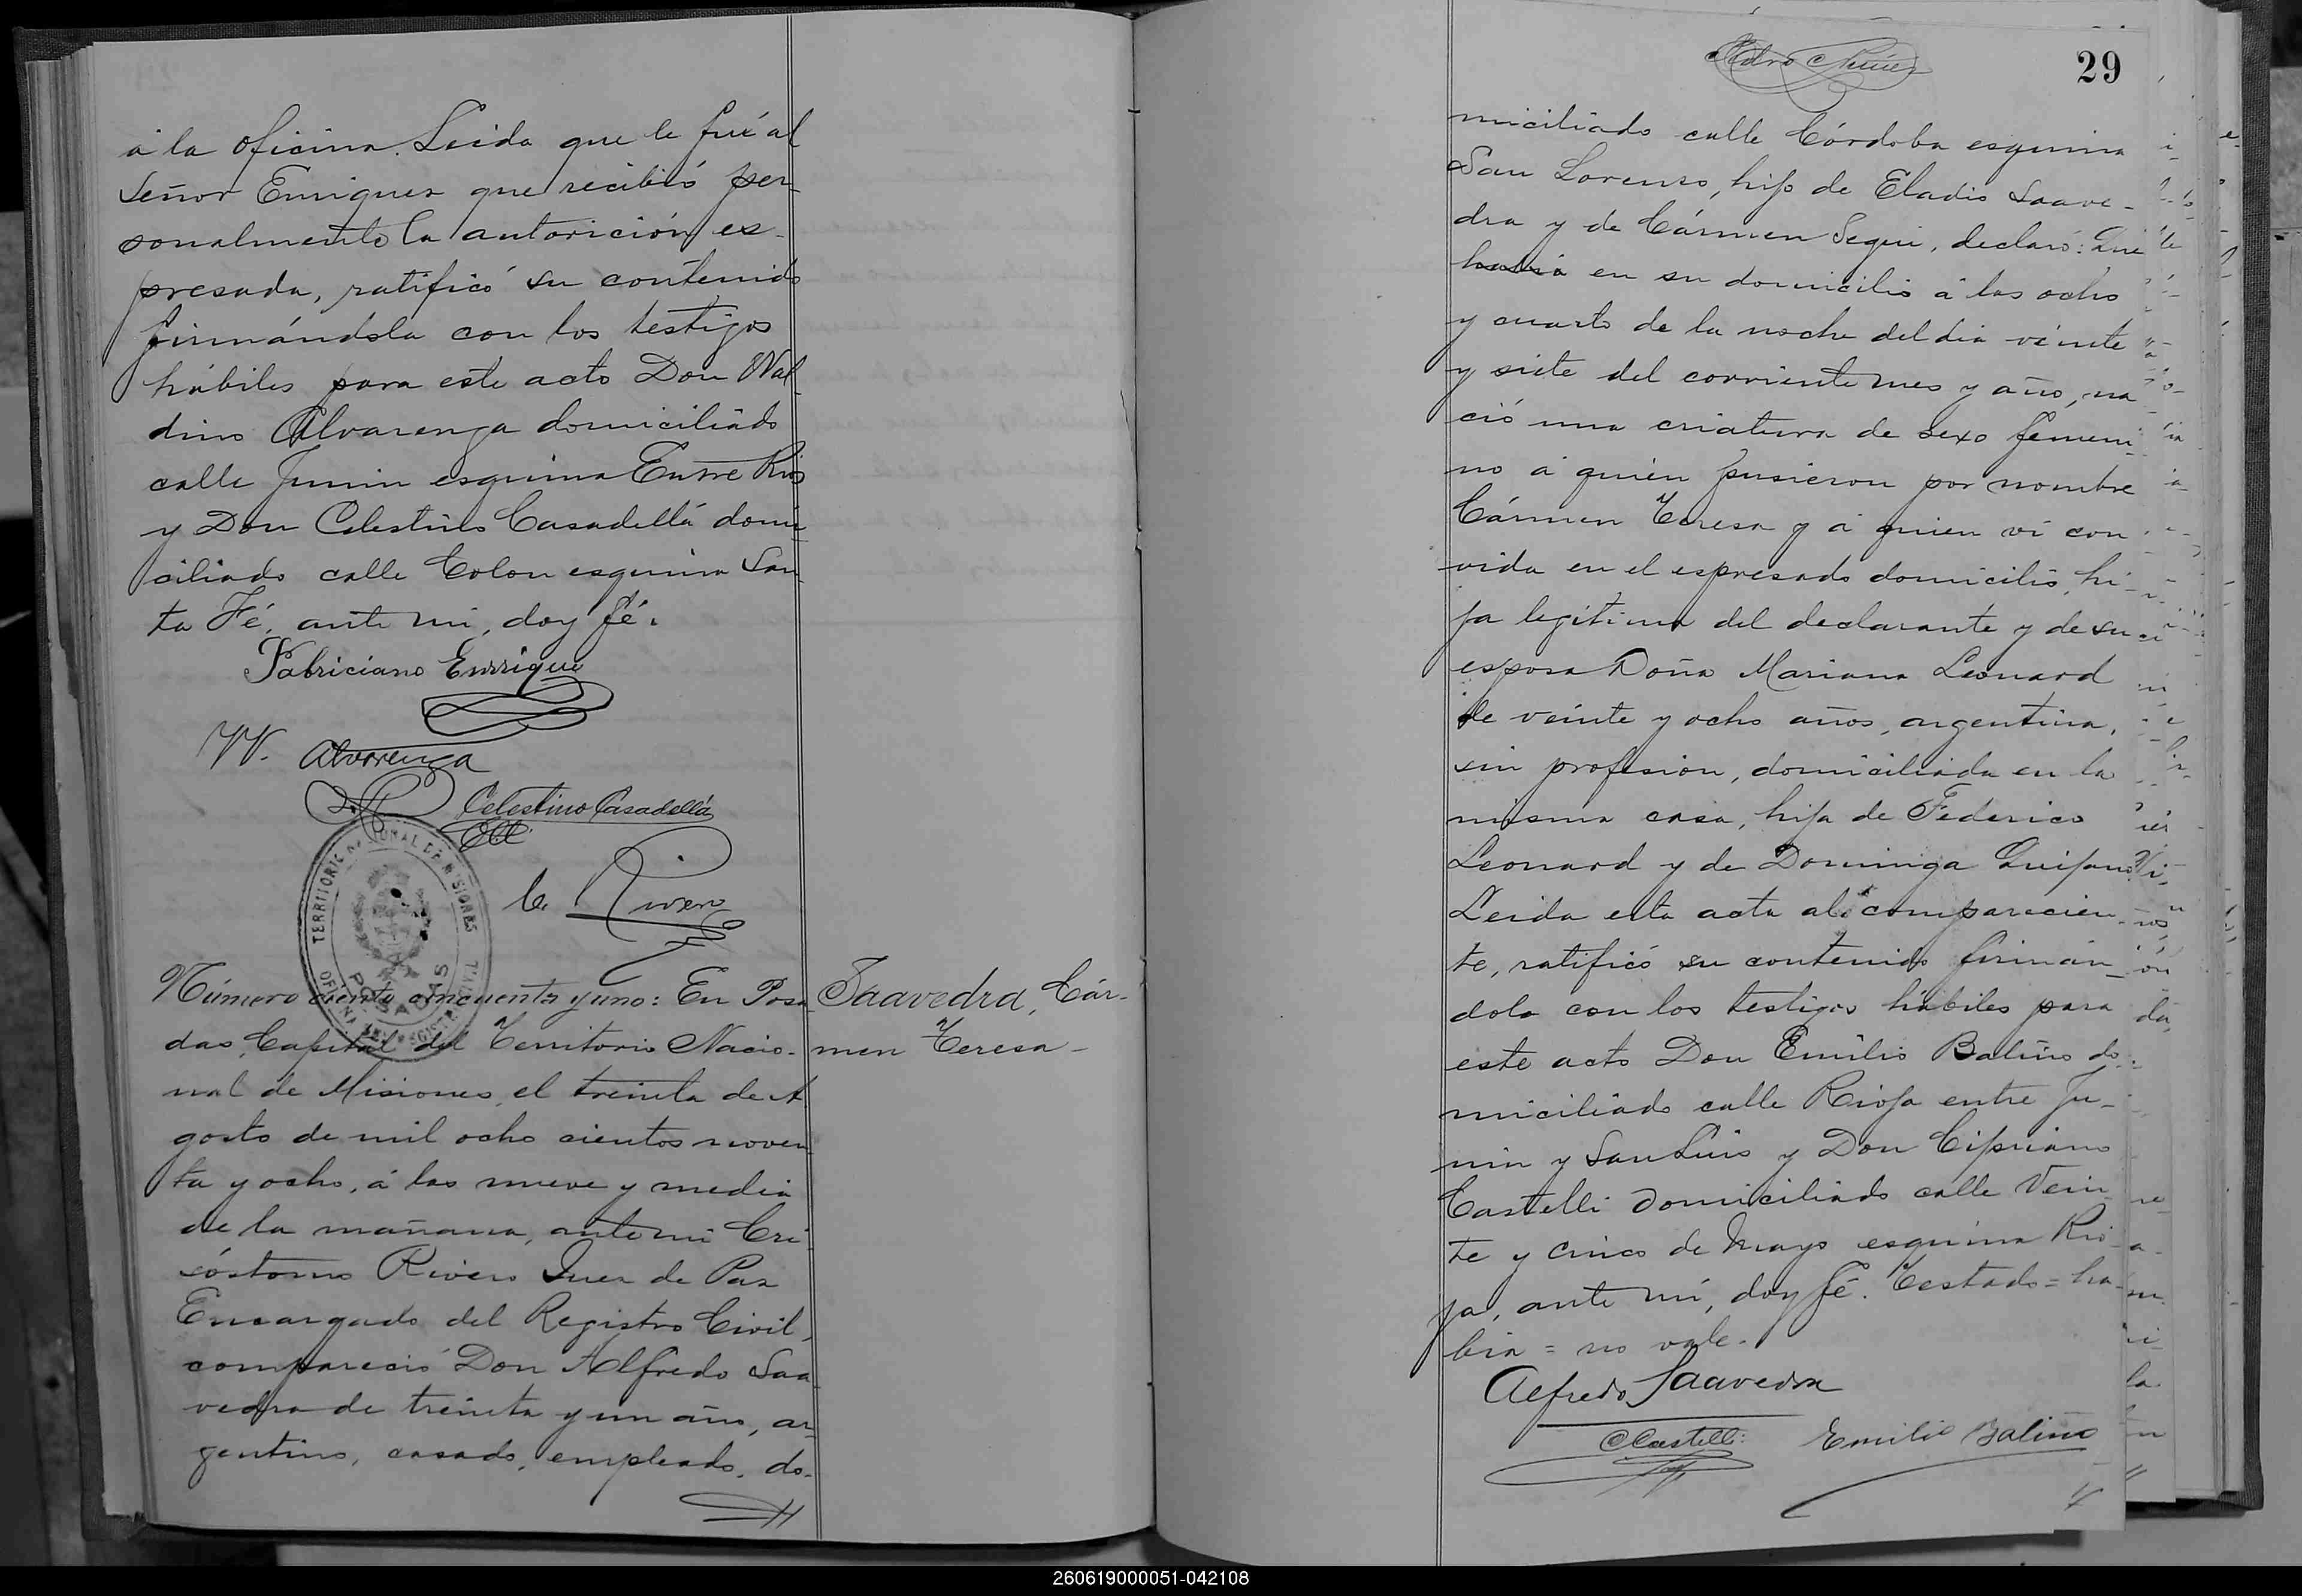 á la oficina. Leida que le fué al
Señor Enriquez que recibió per-
sonalmente la autorición es-
presada, ratificó su contenido
firmándola con los testigos
hábiles para este acto Don Wal-
dino Alvarenga domiciliado
calle Junin esquina Entre Rios
y Don Celestino Casadellá domi-
ciliado calle Colon esquina San-
ta Fé, ante mi, doy fé.
Fabriciano Enrriquez
W. Alvarenga
Celestino Casadellá
C. Rivero
TERRITORIO NACIONAL DE MISIONES
POSADAS
Número ciento cincuenta y uno: En Posa-
das, Capital del Territorio Nacio-
nal de Misiones, el treinta de A-
gosto de mil ocho cientos noven-
ta y ocho, á las nueve y media
de la mañana, ante mi Cri-
sóstomo Rivero Juez de Paz
Encargado del Registro Civil,
compareció Don Alfredo Saa-
vedra de treinta y un año, ar-
gentino, casado, empleado, do-
Saavedra, Cár-
men Teresa-
29
miciliado calle Córdoba esquina
San Lorenzo, hijo de Eladio Saave-
dra y de Cármen Segui, declaró: Que
había en su domicilio á las ocho
y cuarto de la noche del dia veinte
y siete del corriente mes y año, na-
ció una criatura de sexo femeni-
no á quien pusieron por nombre
Cármen Teresa y á quien ví con
vida en el espresado domicilio, hi-
ja legítima del declarante y de su
esposa Doña Mariana Leonard
de veinte y ocho años, argentina,
sin profesion, domiciliada en la
misma casa, hija de Federico
Leonard y de Dominga Quijano.
Leida esta acta al comparecien-
te, ratificó su contenido firmán-
dola con los testigos hábiles para
este acto Don Emilio Baliño do-
miciliado calle Rioja entre Ju-
nin y San Luis y Don Cipriano
Castelli domiciliado calle Vein-
te y cinco de Mayo esquina Rio-
ja, ante mí, doy fé. Testado = ha-
bia = no vale.
Alfredo Saavedra
C Castelli
Emilio Baliño
260619000051-042108